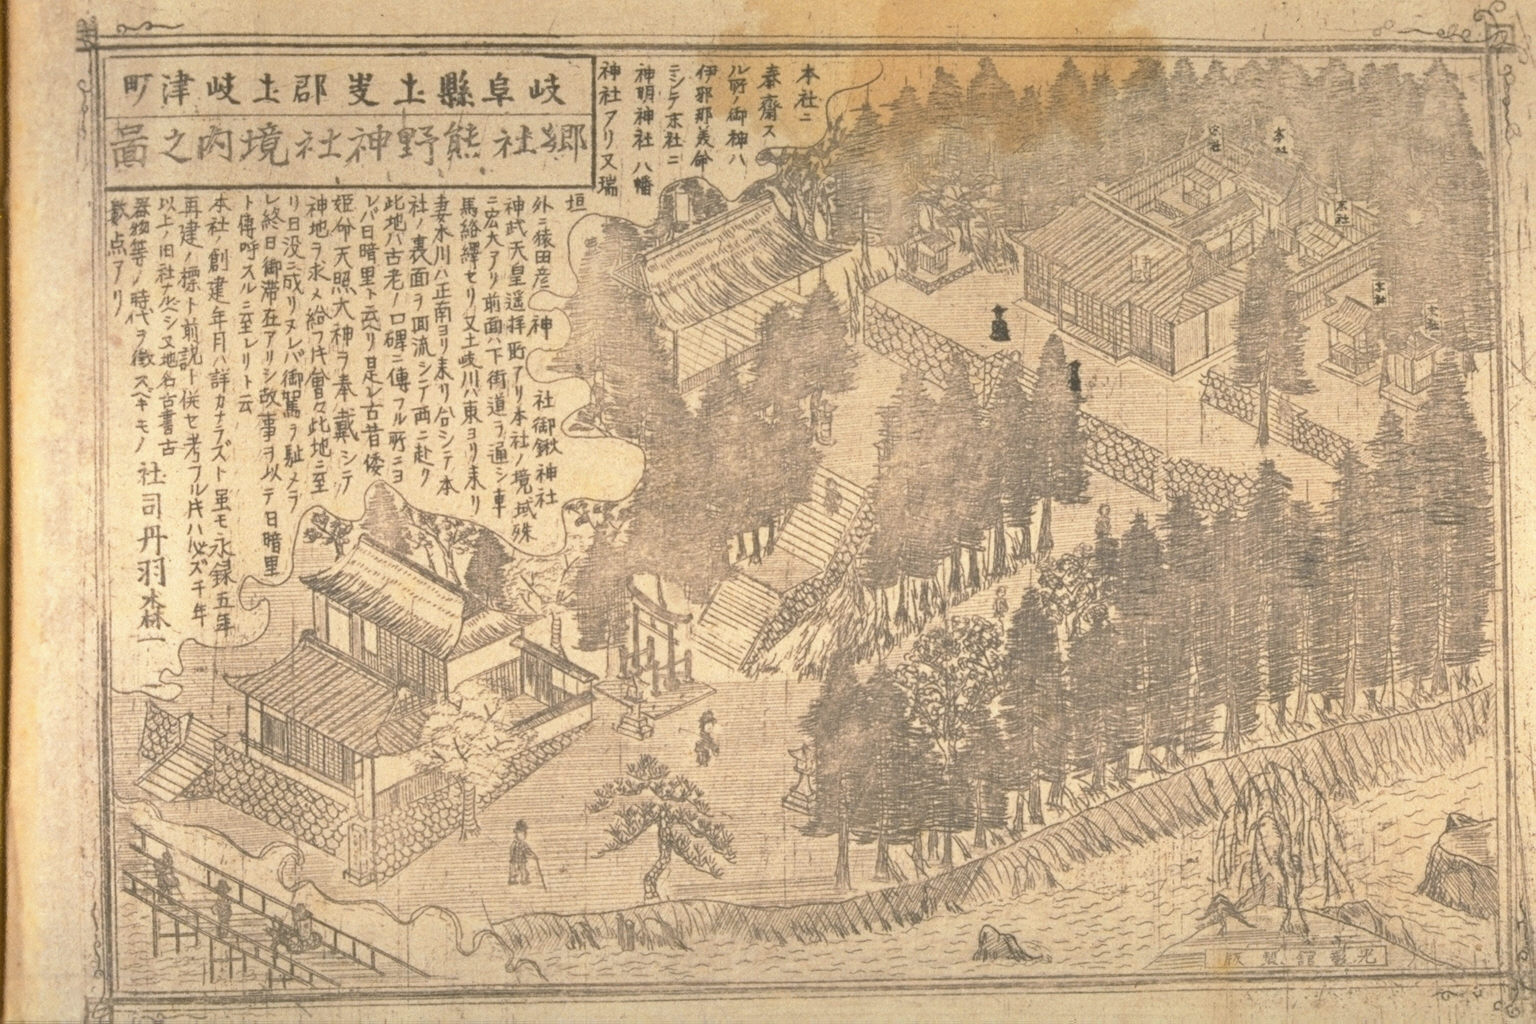 岐阜縣土岐郡土岐津町
郷社熊野神社境内之圖
本社ニ
奉齋ス
ル所ノ御神ハ
伊邪那美命
ニシテ末社ニ
神明神社 八幡
神社アリ又瑞
垣
外ニ猿田彦神社御鍬神社
神武天皇遥拝所アリ本社ノ境域殊
ニ宏大アリ前面ハ下街道ヲ通シ車
馬絡繹セリ又土岐川ハ東ヨリ来リ
妻木川ハ正南ヨリ来リ合シテ本
社ノ裏面ヲ回流シテ西ニ赴ク
此地ハ古老ノ口碑ニ傳フル所ニヨ
レバ日暗里ト云リ是レ古昔倭
姫命天照大神ヲ奉戴シテ
神地ヲ求メ給フ片會々此地ニ至
リ日没ニ成リヌレバ御駕ヲ駐メラ
レ終日御滞在アリシ故事ヲ以テ日暗里
ト傳呼スルニ至レリト云
本社ノ創建年月ハ詳カナラズト虽モ永録五年
再建ノ標ト前説ト併セ考フル片ハ必ズ千年
以上ノ旧社
シ又地名古書古
器物等ノ時代ヲ徴スベキモノ
数点アリ
社司丹羽森一
本社
末社
末社
末社
光彰館製版